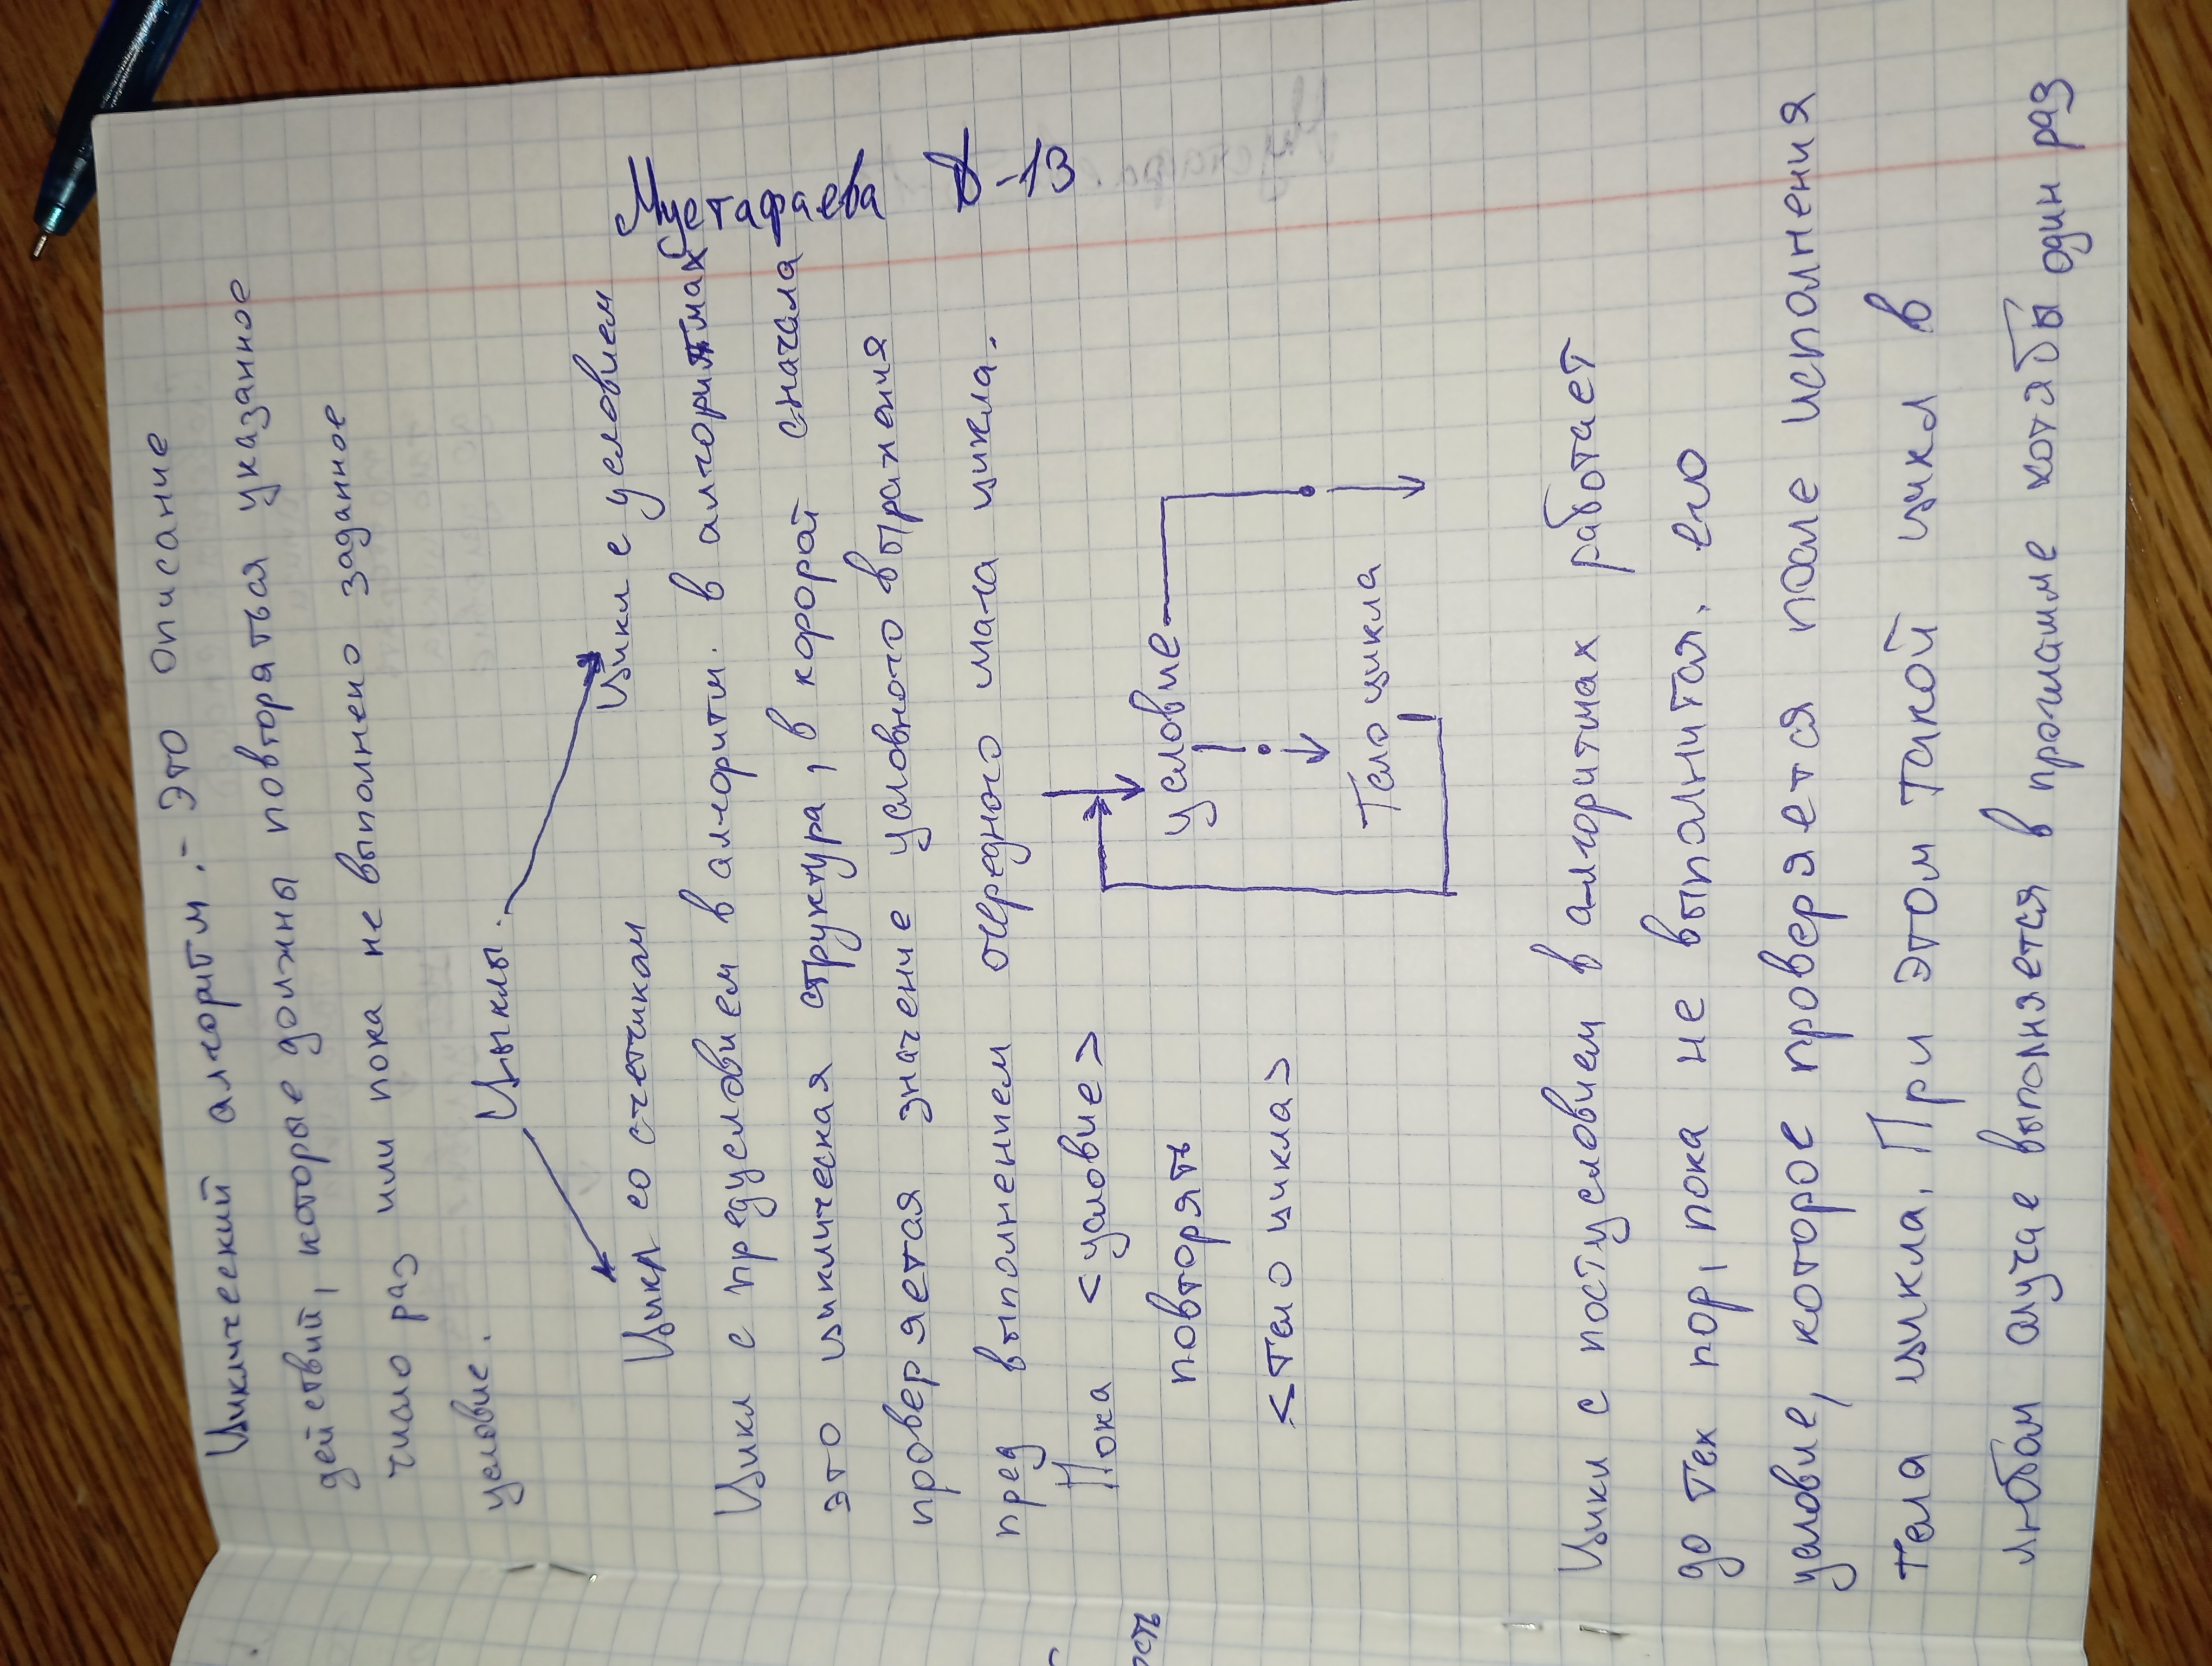 Циклический алгоритм :- это описание
действий, которые должны повторяться указанное
число раз или пока не выполнено заданное
условие.
Цыклы.
Цикл со счетчиком
Цикл с условием
Мустафаева
-13
Цикл с предусловием в алгоритм. в алгоритмах
это циклическая структура, в коророй сначала
проверяется значение условного выражения
пред выполнением очередного шага цикла.
Пока <условие>
повторять
<тело цикла>
условие
Тело цикла
Цикл с постусловием в алгоритмах работает
до тех пор, пока не выполнится. его
условие, которое проверяется после исполнения
тела цикла. При этом такой цикл в
любом случае выполняется в программе хотябы один раз
ость